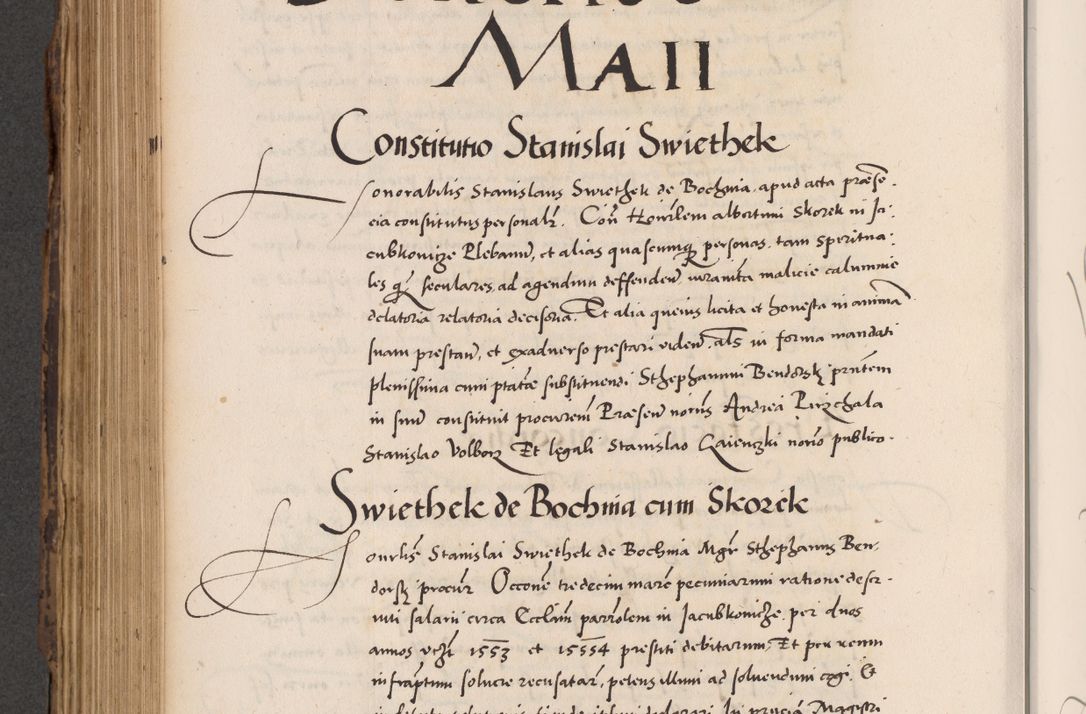 MAII
Constitutio Stanislai Swiethek
Honorabilis Stanislaus Swiethek de Bochnia apud acta præse-
cia constitutus personalr. Con Honrilem albertum Skorek in Ja-
cubkonicze Plebanu, et alias quascumq personas tam speritua-
les q seculares, ad agendum deffendend iuramta malicie calumnie
delatoria relatoria decisoria. Et alia queuis licita et honesta in animã
suam prestand, et exaduerso prestari vidend. als in forma mandati
plenissima cum ptate substituendi Sthephanum Bendorsk prntem
in sinu constituit procurem Præsen noriis Andrea Pirzchala
Stanislao Volborz Et legali Stanislao Czaienczki norio publico.
Swiethek de Bochnia cum Skorek
Honrlis Stanislai Swiethek de Bochnia Mgr Sthephanus Ben-
dorsk procur Occone tredecim marc pecuniarum ratione deser-
uiti salarii circa Ecclam parrolem in Jacubkonicze per duos
annos vtzi 1553 et 15554 prestiti debitarum, Et per reum
infraptum soluere recusatar, petens illum ad soluendum cogi. Et